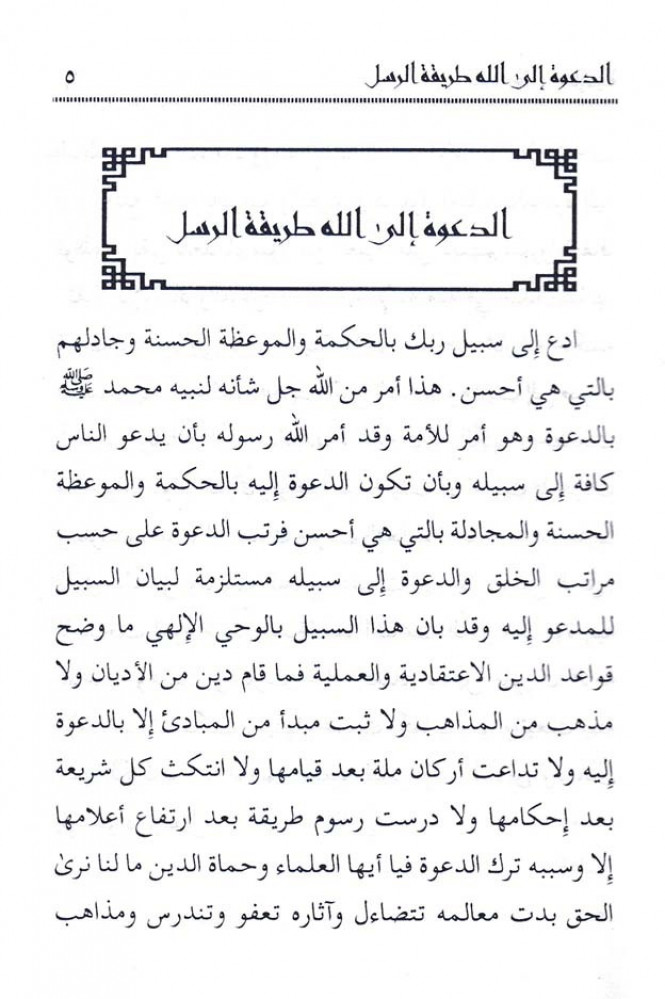 الدعوة إلىٰ الله طريقة الرسل ٥
الدعوة إلىٰ الله طريقة الرسل
ادع إلى سبيل ربك بالحكمة والموعظة الحسنة وجادلهم
بالتي هي أحسن. هذا أمر من الله جل شأنه لنبيه محمد ﷺ
بالدعوة وهو أمر للأمة وقد أمر الله رسوله بأن يدعو الناس
كافة إلى سبيله وبأن تكون الدعوة إليه بالحكمة والموعظة
الحسنة والمجادلة بالتي هي أحسن فرتب الدعوة على حسب
مراتب الخلق والدعوة إلى سبيله مستلزمة لبيان السبيل
للمدعو إليه وقد بان هذا السبيل بالوحي الإلهي ما وضح
قواعد الدين الاعتقادية والعملية فما قام دين من الأديان ولا
مذهب من المذاهب ولا ثبت مبدأ من المبادئ إلا بالدعوة
إليه ولا تداعت أركان ملة بعد قيامها ولا انتكث كل شريعة
بعد إحكامها ولا درست رسوم طريقة بعد ارتفاع أعلامها
إلا وسببه ترك الدعوة فيا أيها العلماء وحماة الدين ما لنا نرىٰ
الحق بدت معالمه تتضاءل وآثاره تعفو وتندرس ومذاهب